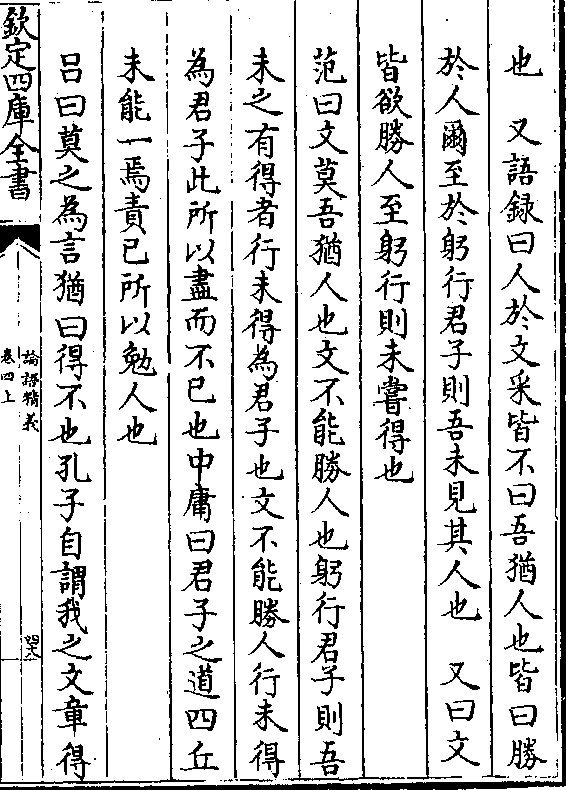 也　又語録曰人於文采皆不曰吾猶人也皆曰勝
於人爾至於躬行君子則吾未見其人也　又曰文
皆欲勝人至躬行則未嘗得也
范曰文莫吾猶人也文不能勝人也躬行君子則吾
未之有得者行未得為君子也文不能勝人行未得
為君子此所以盡而不已也中庸曰君子之道四丘
未能一焉責已所以勉人也
吕曰莫之為言猶曰得不也孔子自謂我之文章得
欽定四庫全書
論語精義
卷四上